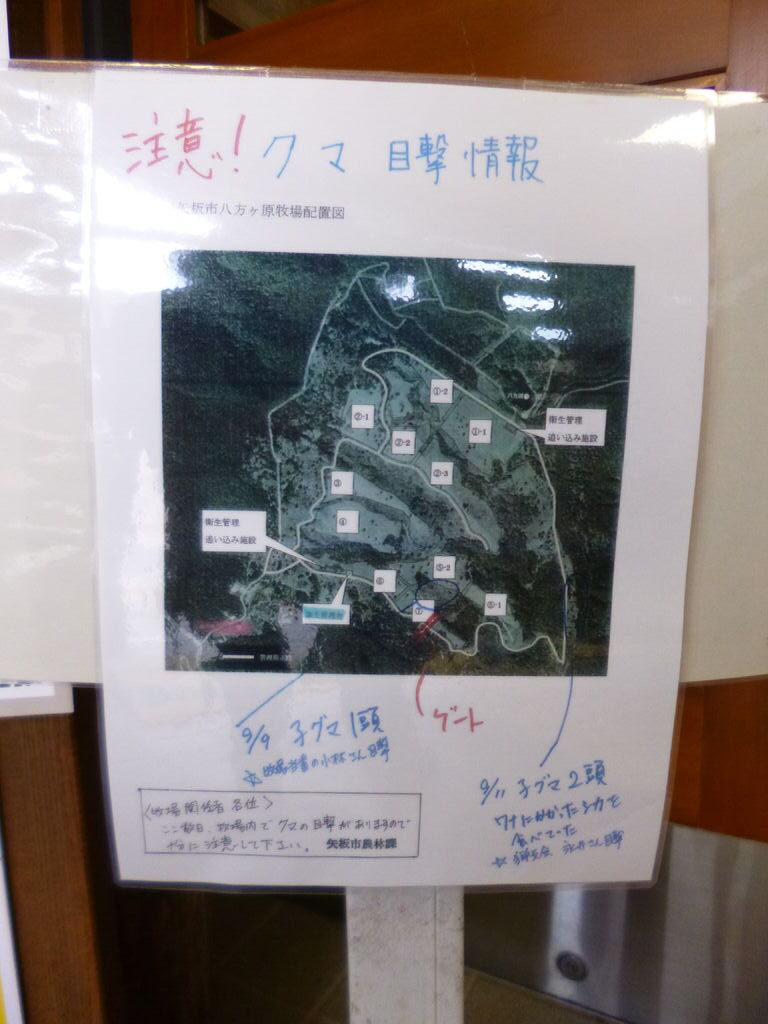 注意! クマ 目撃情報
矢板市八方ヶ原牧場配置図
①-2
②-1
①-1
衛生管理
追い込み施設
②-2
②-3
③
④
衛生管理
追い込み施設
⑤-2
⑥
⑤-1
⑦
ゲート
9/9 子グマ1頭
の小林さん目撃
9/11 子グマ2頭
ワナにかかったシカを
食べていた
☆猟友会 永井さん目撃
<牧場関係者各位>
ここ数日、牧場内でクマの目撃がありますので
十分に注意して下さい。 矢板市農林課